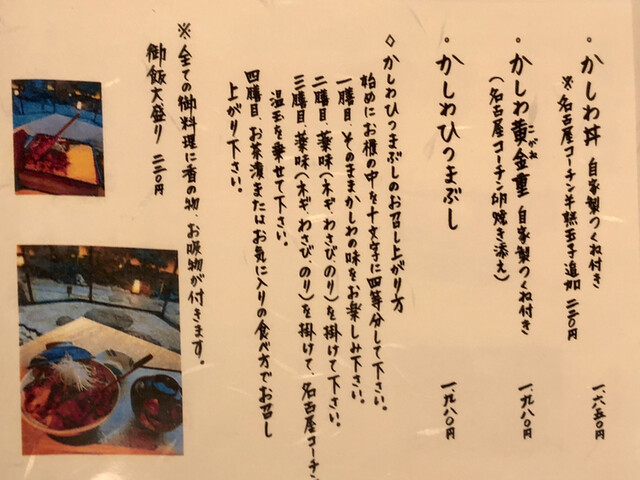 ・かしわ丼 自家製つくね付き 一、六五〇円
※名古屋コーチン半熟玉子追加 二二〇円
・かしわ黄金重 自家製つくね付き 一、九八〇円
こがね
(名古屋コーチン卵焼き添え)
・かしわひつまぶし 一、九八〇円
◇かしわひつまぶしのお召し上がり方
始めにお櫃の中を十文字に四等分して下さい。
一膳目、そのままかしわの味をお楽しみ下さい。
二膳目、薬味(木ギ、わさび、のり)を掛けて下さい。
三膳目、薬味(木ギ、わさび、のり)を掛けて、名古屋コーチン
温玉を乗せて下さい。
四膳目、お茶漬またはお気に入りの食べ方でお召し
上がり下さい。
※全ての御料理に香の物、お吸物が付きます。
御飯大盛り 二二〇円